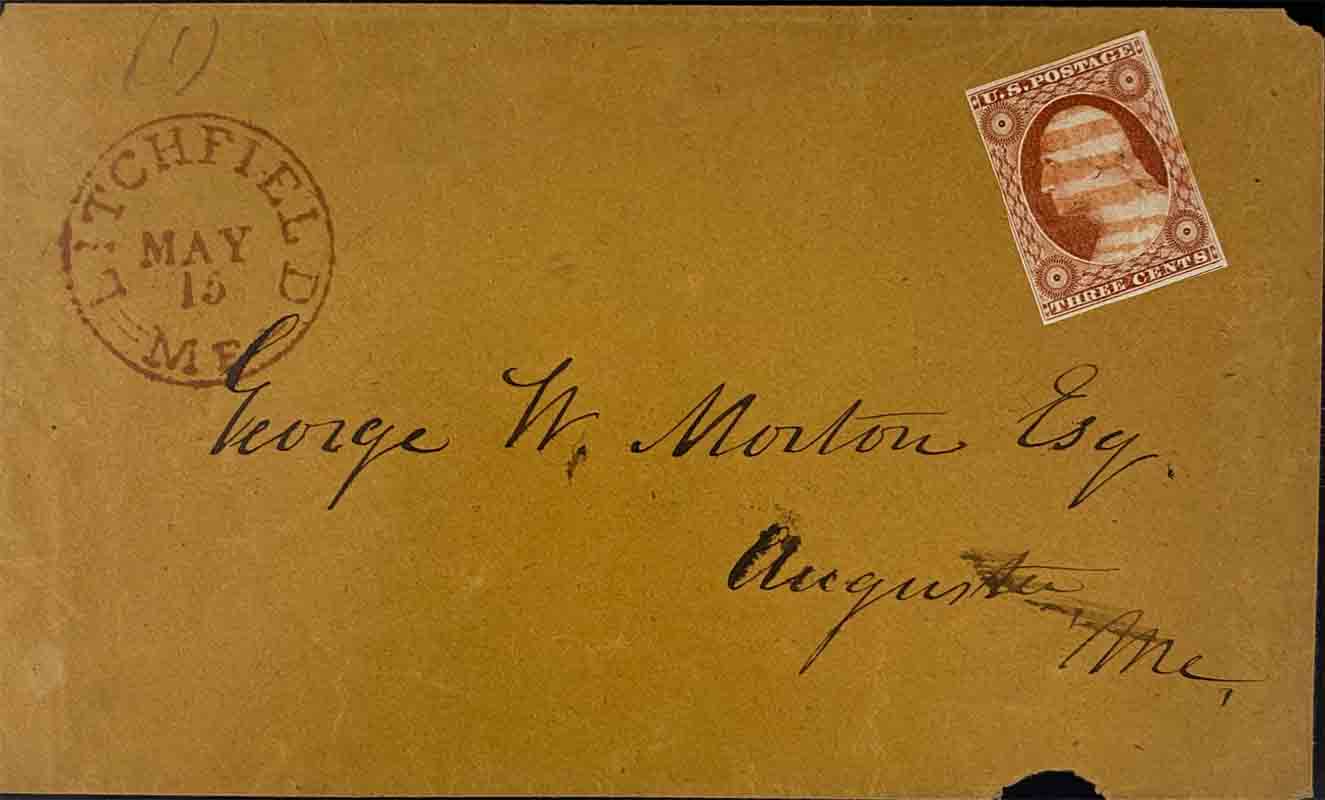 (1)
LITCHFIELD
MAY
15
ME
U.S. POSTAGE
THREE CENTS
George W. Morton Esq.
Augusta
Me,